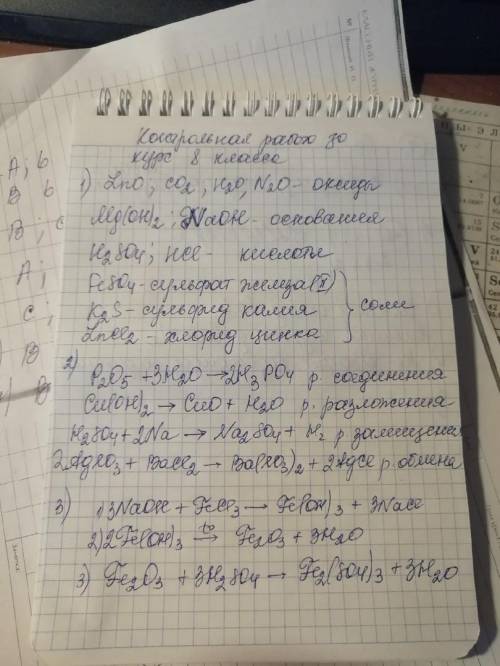 Контрольная работа за
курс 8 класса
1) ZnO, CO2, H2O, N2O - оксиды
Mg(OH)2; NaOH - основания
H2SO4; HCl - кислоты
FeSO4 - сульфат железа (II)
K2S - сульфид калия
ZnCl2 - хлорид цинка
соли
2) P2O5 + 3H2O → 2H3PO4 р. соединения
Cu(OH)2 → CuO + H2O р. разложения
H2SO4 + 2Na → Na2SO4 + H2 р замещения
2AgNO3 + BaCl2 → Ba(NO3)2 + 2AgCl р. обмена
3) 1) 3NaOH + FeCl3 → Fe(OH)3 + 3NaCl
2) 2Fe(OH)3 t° → Fe2O3 + 3H2O
3) Fe2O3 + 3H2SO4 → Fe2(SO4)3 + 3H2O
A; b
B b
B; c
A;
C;
B
B